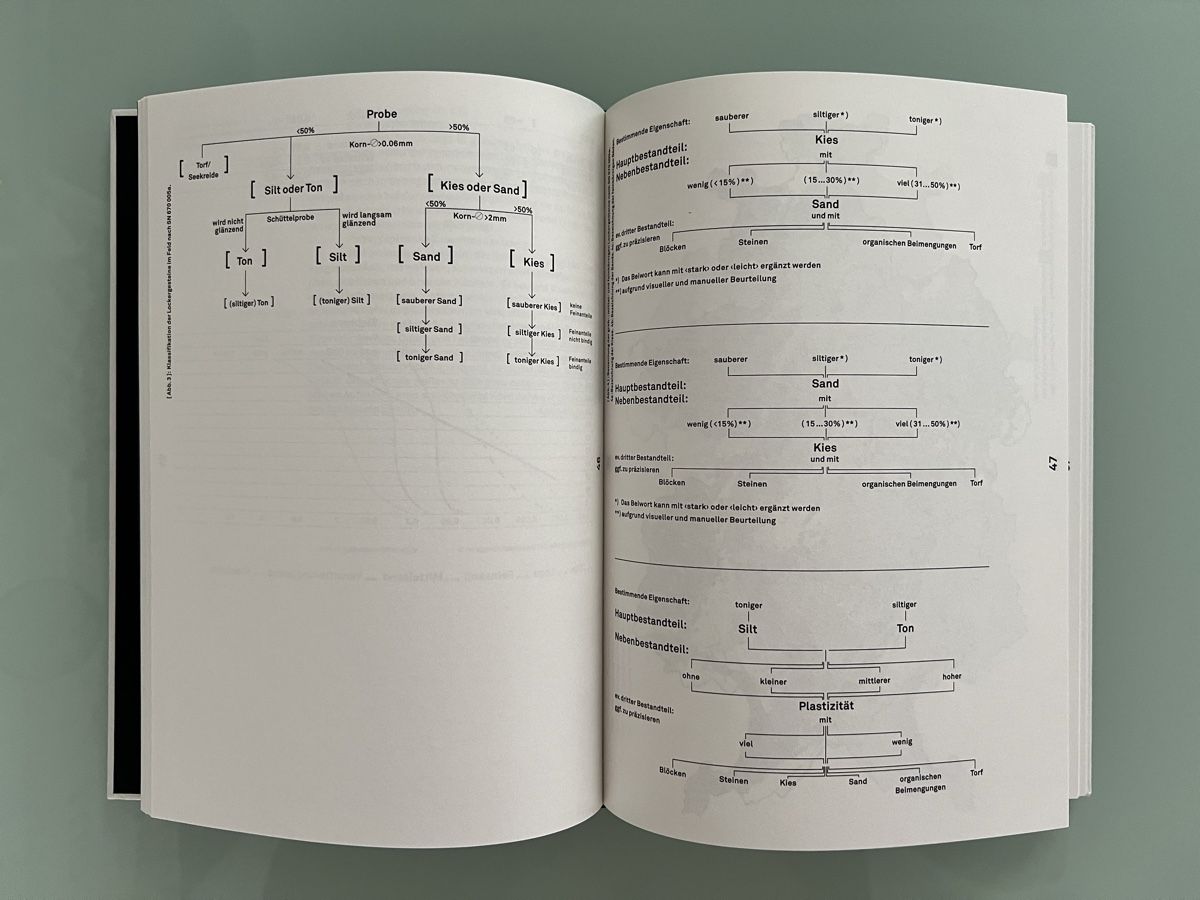 Probe
<50%
>50%
Korn-∅>0.06mm
[ Torf/
Seekreide ]
[ Silt oder Ton ]
[ Kies oder Sand ]
wird nicht
glänzend
Schüttelprobe
wird langsam
glänzend
<50%
Korn-∅>2mm
>50%
[ Ton ]
[ Silt ]
[ Sand ]
[ Kies ]
[ (siltiger) Ton ]
[ (toniger) Silt ]
[ sauberer Sand ]
[ sauberer Kies ]
keine
Feinanteile
[ siltiger Sand ]
[ siltiger Kies ]
Feinanteile
nicht bindig
[ toniger Sand ]
[ toniger Kies ]
Feinanteile
bindig
[ Abb. 3 ]: Klassifikation der Lockergesteine im Feld nach SN 670 005a.
46
Bestimmende Eigenschaft:
sauberer
siltiger*)
toniger*)
Hauptbestandteil:
Kies
Nebenbestandteil:
mit
wenig (<15%)**)
(15...30%)**)
viel (31...50%)**)
Sand
und mit
ev. dritter Bestandteil:
ggf. zu präzisieren
Blöcken
Steinen
organischen Beimengungen
Torf
*) Das Beiwort kann mit ‹stark› oder ‹leicht› ergänzt werden
**) aufgrund visueller und manueller Beurteilung
Bestimmende Eigenschaft:
sauberer
siltiger*)
toniger*)
Hauptbestandteil:
Sand
Nebenbestandteil:
mit
wenig (<15%)**)
(15...30%)**)
viel (31...50%)**)
Kies
und mit
ev. dritter Bestandteil:
ggf. zu präzisieren
Blöcken
Steinen
organischen Beimengungen
Torf
*) Das Beiwort kann mit ‹stark› oder ‹leicht› ergänzt werden
**) aufgrund visueller und manueller Beurteilung
47
Bestimmende Eigenschaft:
toniger
siltiger
Hauptbestandteil:
Silt
Ton
Nebenbestandteil:
ohne
kleiner
mittlerer
hoher
Plastizität
mit
ev. dritter Bestandteil:
ggf. zu präzisieren
viel
wenig
Blöcken
Steinen
Kies
Sand
organischen
Beimengungen
Torf